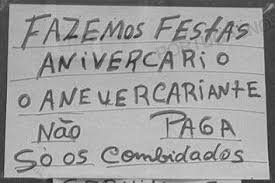 FAZEMOS FESTAS
ANIVERCARIO
O ANEVERCARIANTE
NÃO PAGA
SÓ OS COMBIDADOS